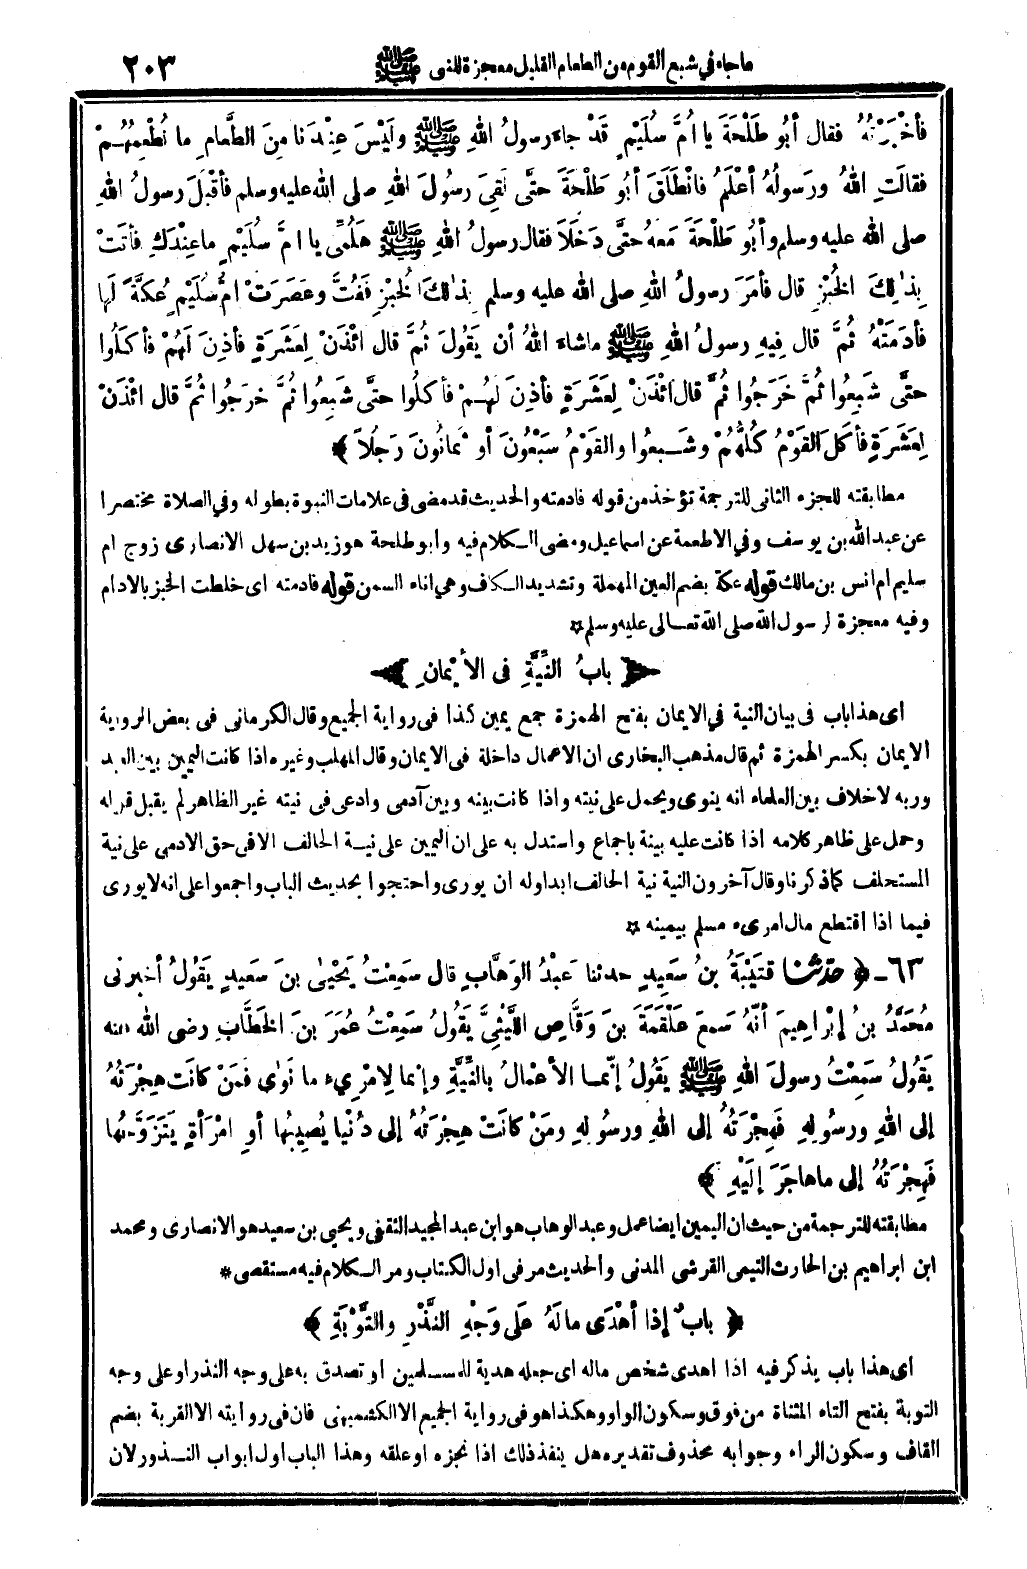 ما جاء في شبع القوم من الطعام القليل معجزة للنبى ﷺ ٢٠٣
فأخْبَرَتْهُ فقال أبُو طَلْحَةَ يا أُمَّ سُلَيْمٍ قَدْ جاءَ رسولُ اللهِ ﷺ ولَيْسَ عِنْدَنا مِنَ الطَّعامِ ما نُطْعِمُهُمْ
فقالَتِ اللهُ ورَسولُهُ أعْلَمُ فانْطَلَقَ أبُو طَلْحَةَ حتَّى لَقِيَ رسُولَ اللهِ صلى الله عليه وسلم فأقْبَلَ رسولُ اللهِ
صلى الله عليه وسلم وأبُو طَلْحَةَ مَعهُ حتَّى دَخَلَا فقال رسولُ اللهِ ﷺ هَلُمِّى يا أمَّ سُلَيْمٍ ما عِنْدَكِ فأتَتْ
بِذٰلِكَ الخُبْزِ قال فأمَرَ رسولُ اللهِ صلى الله عليه وسلم بِذٰلِكَ الخُبْزِ فَفُتَّ وعَصَرَتْ أمُّ سُلَيْمٍ عُكَّةً لَها
فأدَمَتْهُ ثُمَّ قال فِيهِ رسولُ اللهِ ﷺ ماشاء اللهُ أن يَقُولَ ثُمَّ قال ائْذَنْ لِعَشَرَةٍ فأذِنَ لَهُمْ فأكَلُوا
حتَّى شَبِعُوا ثُمَّ خَرَجُوا ثُمَّ قال ائْذَنْ لِعَشَرَةٍ فأذِنَ لَهُمْ فأكلُوا حتَّى شَبِعُوا ثُمَّ خرَجُوا ثُمَّ قال ائْذَنْ
لِعَشَرَةٍ فأكَلَ القَوْمُ كُلُّهُمْ وشَبِعُوا والقَوْمُ سَبْعُونَ أو ثمانُونَ رَجُلاً ﴾
مطابقته للجزء الثانى للترجمة تؤخذ من قوله فادمته والحديث قد مضى فى علامات النبوة بطوله وفي الصلاة مختصرا
عن عبد الله بن يوسف وفي الاطعمة عن اسماعيل ومضى الكلام فيه وابو طلحة هو زيد بن سهل الانصارى زوج ام
سليم ام انس بن مالك قوله عكة بضم العين المهملة وتشديد الكاف وهي اناء السمن قوله فادمته اى خلطت الخبز بالادام
وفيه معجزة لرسول الله صلى الله تعالى عليه وسلم ☆
﴿ بابُ النِّيَّةِ فى الأيْمانِ ﴾
اى هذا باب فى بيان النية في الايمان بفتح الهمزة جمع يمين كذا فى رواية الجميع وقال الكرمانى فى بعض الرواية
الايمان بكسر الهمزة ثم قال مذهب البخارى ان الاعمال داخلة فى الايمان وقال المهلب وغيره اذا كانت اليمين بين العبد
وربه لا خلاف بين العلماء انه ينوى ويحمل على نيته واذا كانت بينه وبين آدمى وادعى فى نيته غير الظاهر لم يقبل قوله
وحمل على ظاهر كلامه اذا كانت عليه بينة باجماع واستدل به على ان اليمين على نية الحالف الا فى حق الادمى على نية
المستحلف كما ذكرنا وقال آخرون النية نية الحالف ابدا وله ان يورى واحتجوا بحديث الباب واجمعوا على انه لا يورى
فيما اذا اقتطع مال امرىء مسلم بيمينه ☆
٦٣ - ﴿ حدثنا قتَيْبَةُ بنُ سَعِيدٍ حدثنا عبْدُ الوَهَّابِ قال سَمِعْتُ يَحْيىٰ بنَ سَعِيدٍ يَقُولُ أخبرنى
مُحَمَّدُ بنُ إبْرَاهِيمَ أنَّهُ سَمِعَ عَلْقَمَةَ بنَ وَقَّاصٍ اللَّيْثِيَّ يَقُولُ سَمِعْتُ عُمَرَ بنَ الخَطَّابِ رضى الله عنه
يَقُولُ سَمِعْتُ رسولَ اللهِ ﷺ يَقُولُ إنّما الأعْمالُ بالنِّيَّةِ وإنما لِامْرِيءٍ ما نَوٰى فَمَنْ كانَت هِجْرَتُهُ
إلى اللهِ ورسُولِهِ فَهِجْرَتُهُ إلى اللهِ ورسُولِهِ ومَنْ كانَتْ هِجْرَتُهُ إلى دُنْيا يُصِيبُها أوِ امْرَأةٍ يَتَزَوَّجُها
فَهِجْرَتُهُ إلى ما هاجَرَ إلَيْهِ ﴾
مطابقته للترجمة من حيث ان اليمين ايضا عمل وعبد الوهاب هو ابن عبد المجيد الثقفى ويحيى بن سعيد هو الانصارى ومحمد
ابن ابراهيم بن الحارث التيمى القرشى المدنى والحديث مر فى اول الكتاب ومر الكلام فيه مستقصى *
﴿ بابٌ إذا أهْدَى مالَهُ عَلى وَجْهِ النَّذْرِ والتَّوْبَةِ ﴾
اى هذا باب يذكر فيه اذا اهدى شخص ماله اى جعله هدية للمسلمين او تصدق به على وجه النذر او على وجه
التوبة بفتح التاء المثناة من فوق وسكون الواو وهكذا هو فى رواية الجميع الا الكشميهنى فان فى روايته الا القربة بضم
القاف وسكون الراء وجوابه محذوف تقديره هل ينفذ ذلك اذا نجزه او علقه وهذا الباب اول ابواب النذور لان